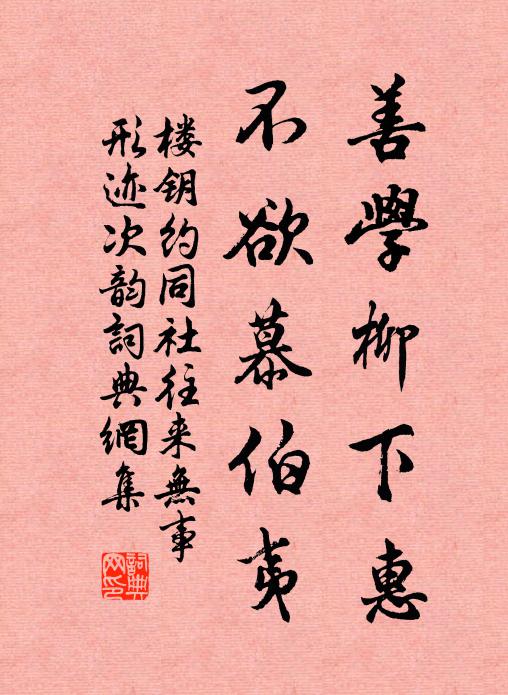 善學柳下惠
不欲慕伯夷
楼钥约同社往来無事
形迹次韵詞典網集
詞典網印